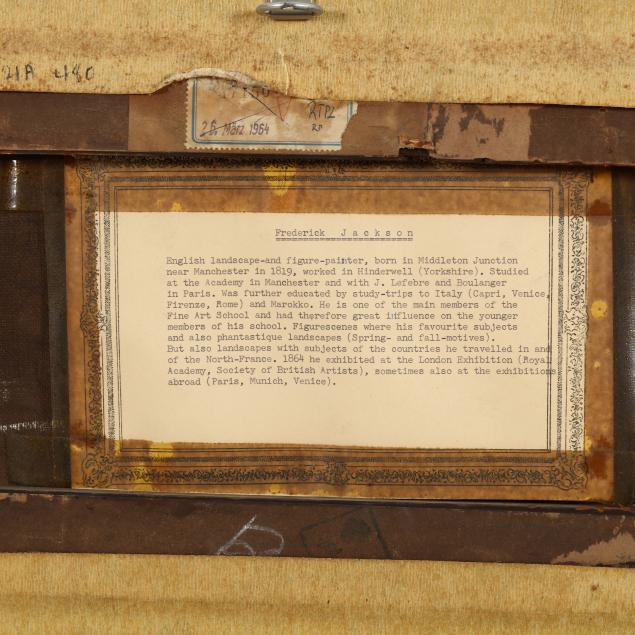 21A 480
26. März 1964
RTPL
RP
Frederick Jackson
English landscape-and figure-painter, born in Middleton Junction
near Manchester in 1819, worked in Hinderwell (Yorkshire). Studied
at the Academy in Manchester and with J. Lefebre and Boulanger
in Paris. Was further educated by study-trips to Italy (Capri, Venice,
Firenze, Rome) and Marokko. He is one of the main members of the
Fine Art School and had therefore great influence on the younger
members of his school. Figurescenes where his favourite subjects
and also phantastique landscapes (Spring- and fall-motives).
But also landscapes with subjects of the countries he travelled in and
of the North-France. 1864 he exhibited at the London Exhibition (Royal
Academy, Society of British Artists), sometimes also at the exhibitions
abroad (Paris, Munich, Venice).